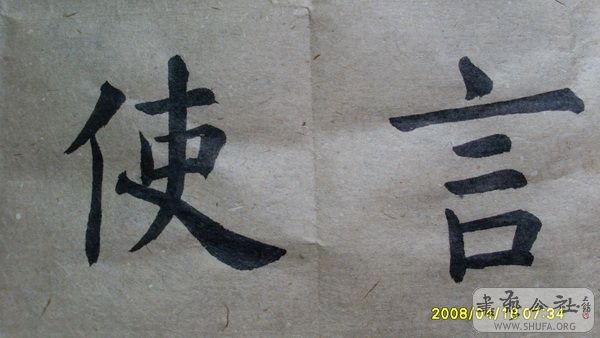 使言
2008/04/19 07:34
書藝公社
WWW.SHUFA.ORG